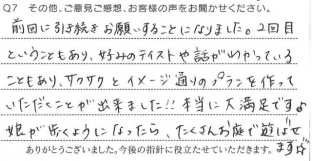 Q7 その他、ご意見ご感想、お客様の声をお聞かせください。
前回に引き続きお願いすることになりました。2回目
ということもあり、好みのテイストや話がわかっている
こともあり、サクサクとイメージ通りのプランを作って
いただくことが出来ました!!本当に大満足です♪
娘が歩くようになったら、たくさんお庭で遊ばせ
ます☆
ありがとうございました。今後の指針に役立たせていただきます。